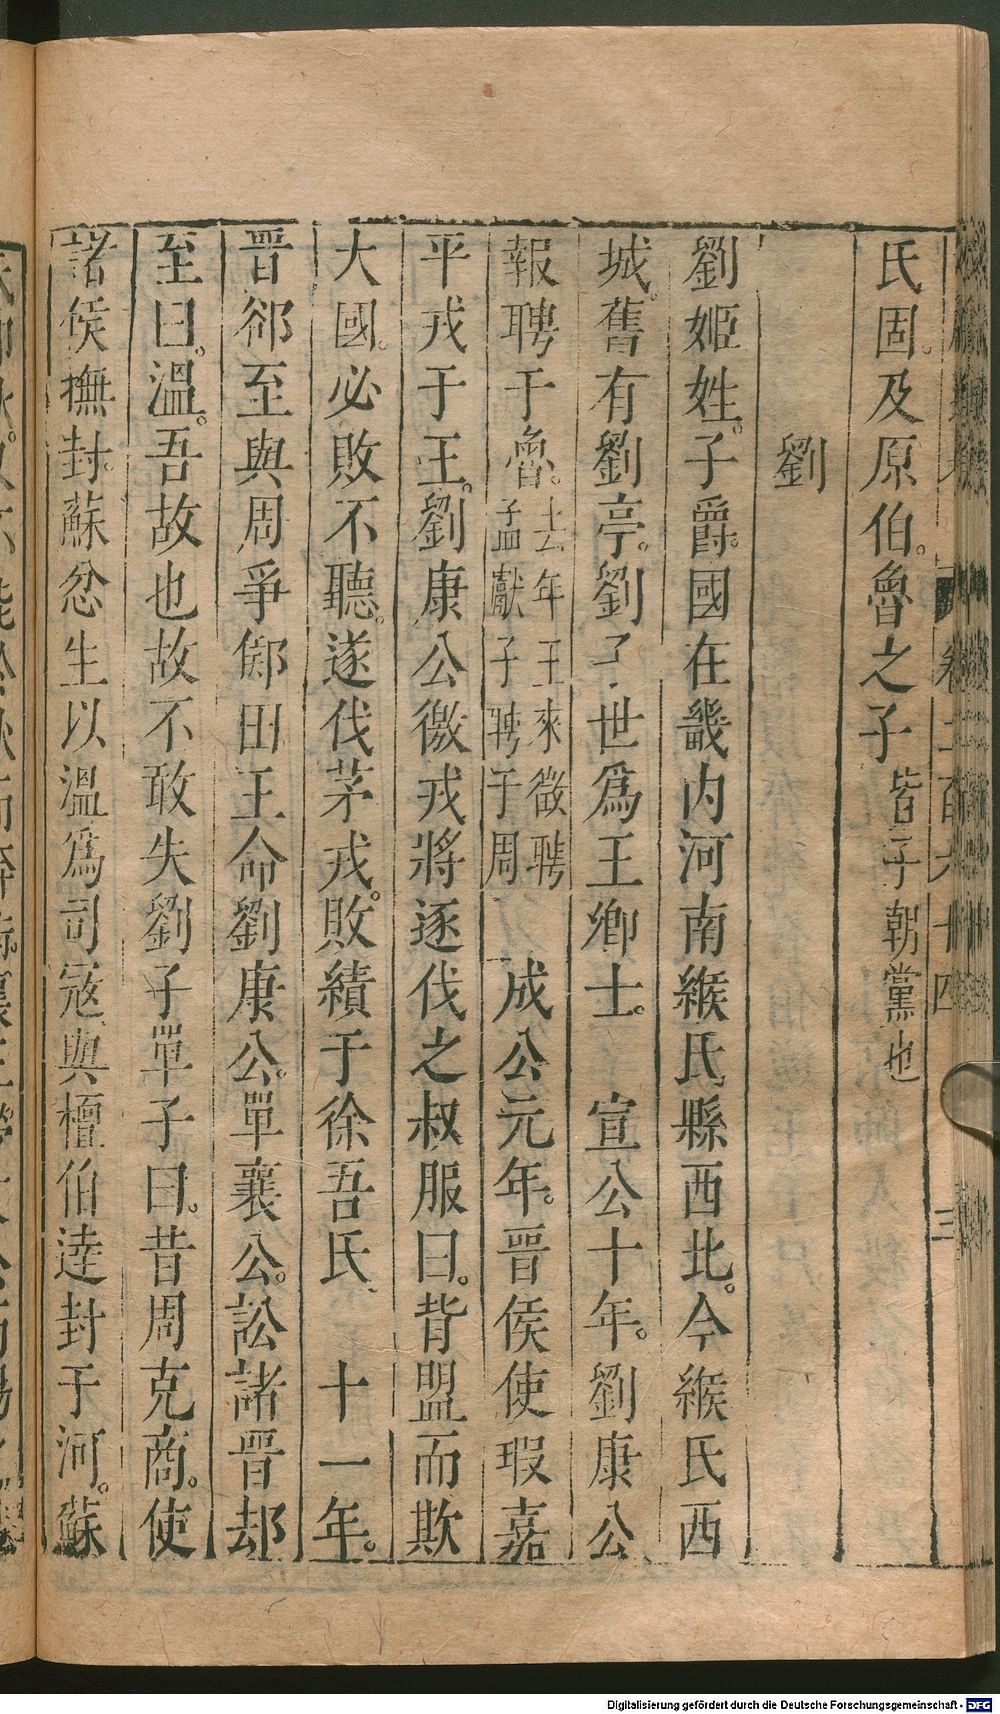 氏固。及原伯。魯之子皆子朝黨也
劉
劉姬姓。子爵。國在畿内河南緱氏縣西北。今緱氏西
城。舊有劉亭。劉子世爲王卿士。 宣公十年。劉康公
報聘于魯。去年王來徵聘孟獻子聘于周 成公元年。晉侯使瑕嘉
平戎于王。劉康公徼戎將逐伐之叔服曰。背盟而欺
大國。必敗不聽。遂伐茅戎。敗績于徐吾氏 十一年。
晉郤至與周爭鄇田王命劉康公。單襄公。訟諸晉郤
至曰。溫。吾故也故不敢失劉子單子曰。昔周克商。使
諸侯撫封。蘇忿生以溫爲司寇與檀伯逹封于河。蘇
Digitalisierung gefördert durch die Deutsche Forschungsgemeinschaft - DFG